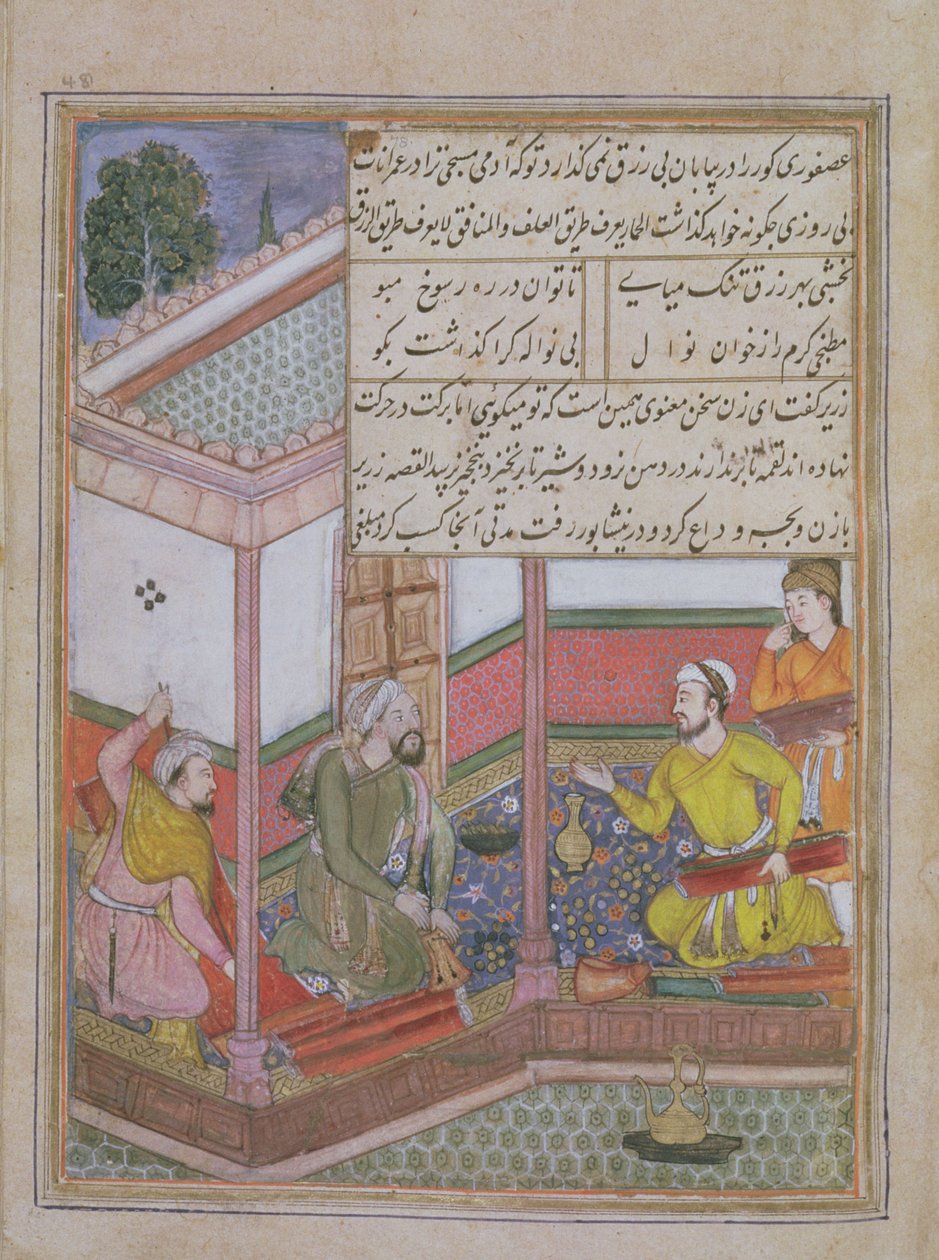 48
78
عصفوری کور را در بیابان بی رزق نمی کذارد تو که آدمی مسیحی ترا در عمرانات
بی روزی چکونه خواهد کذاشت الحمار یعرف طریق العلف والمنافق لا یعرف طریق الرزق
نخشبی بهر رزق تنک میای تا توان در ره رسوخ مبو
مطبخی کرم از خوان نوال بی نواله کرا کذاشت بکو
زریر کفت ای زن سخن معنوی همین است که تو میکوئی اما برکت در حرکت
نهاده اند لقمه تا برندارند در دهن نرود و شیر تا برنخیزد بنخجیر نرسد القصه زریر
با زن و بچه وداع کرد و در نیشابور رفت مدتی آنجا کسب کرد مبلغی